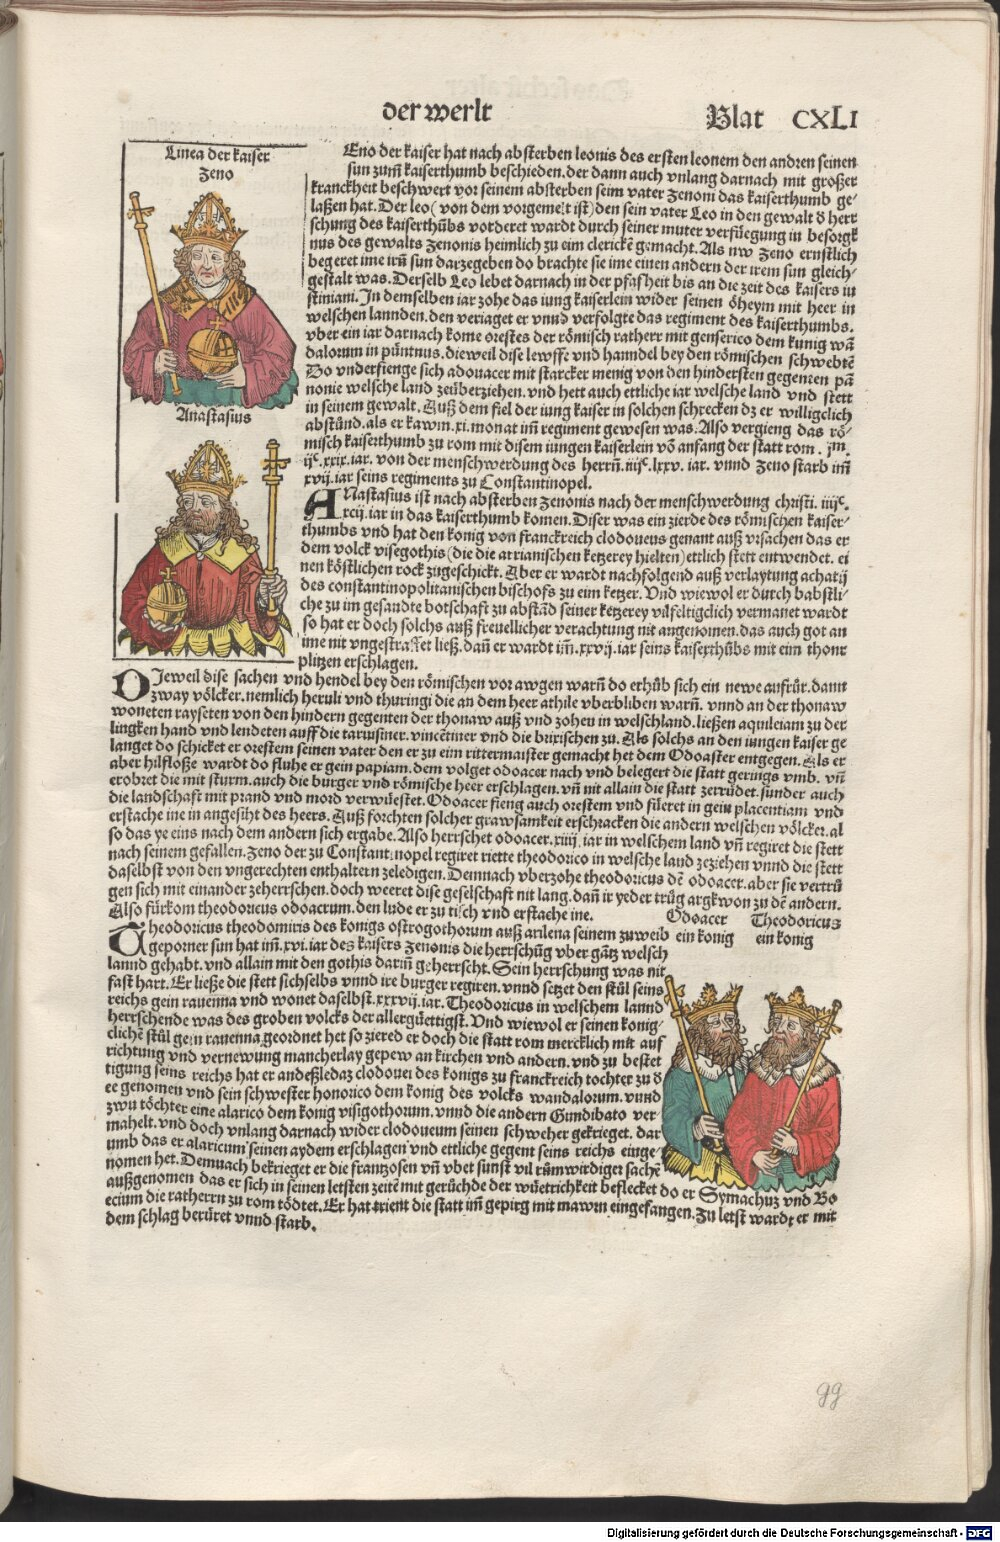 der werlt
Blat CXLI
Linea der kaiser
Zeno
Eno der kaiser hat nach absterben leonis des ersten leonem den andren seinen
sun zum̄ kaiserthumb beschieden. der dann auch vnlang darnach mit großer
kranckheit beschwert vor seinem absterben seim vater Zenoni das kaiserthumb ge-
laßen hat. Der leo( von dem vorgemelt ist) den sein vater Leo in den gewalt d̕ herr
schung des kaiserthūbs vorderet wardt durch seiner muter verfüegung in besorgk
nus des gewalts Zenonis heimlich zu eim clericke gemacht. Als nw Zeno ernstlich
begeret ime irn̄ sun darzegeben do brachte sie ime einen andern der irem sun gleich-
gestalt was. Derselb Leo lebet darnach in der pfafheit bis an die zeit des kaisers iu
stiniani. In demselben iar zohe das iung kaiserlein wider seinen öheym mit heer in
welschen lannden. den veriaget er vnnd verfolgte das regiment des kaiserthumbs.
vber ein iar darnach kome orestes der römisch ratherr mit genserico dem kunig wā
dalorum in püntnus. dieweil dise lewffe vnd hanndel bey den römischen schwebtē
Do vnderfienge sich adouacer mit starcker menig von den hindersten gegenten pā
nonie welsche land zeüberziehen. vnd hett auch ettliche iar welsche land vnd stett
in seinem gewalt. Auß dem fiel der iung kaiser in solchen schrecken dz er williglich
abstünd. als er kawm. xi. monat im̄ regiment gewesen was. Also vergieng das rö-
misch kaiserthumb zu rom mit disem iungen kaiserlein vō anfang der statt rom . jm.
ijc. xxix. iar. von der menschwerdung des herrn̄. iiijc. lxxv. iar. vnnd Zeno starb im̄
xvij. iar seins regiments zu Constantinopel.
Anastasius
ANastasius ist nach absterben Zenonis nach der menschwerdung christi. iiijc.
xcij. iar in das kaiserthumb komen. Diser was ein zierde des römischen kaiser-
thumbs vnd hat den konig von franckreich clodoueus genant auß vrsachen das er
dem volck visegothis (die die arrianischen ketzerey hielten) ettlich stett entwendet. ei
nen köstlichen rock zugeschickt. Aber er wardt nachfolgend auß verlaytung achatij
des constantinopolitanischen bischofs zu eim ketzer. Vnd wiewol er durch babstli-
che zu im gesandte botschaft zu abstād seiner ketzerey vilfeltigclich vermanet wardt
so hat er doch solchs auß freuellicher verachtung nit angenomen. das auch got an
ime nit vngestraffet ließ. dan̄ er wardt im̄. xxvij. iar seins kaiserthūbs mit eim thonr
plitzen erschlagen.
DJeweil dise sachen vnd hendel bey den römischen vor awgen warn̄ do erhůb sich ein newe aufrůr. dann
zway völcker. nemlich heruli vnd thuringi die an dem heer athile vberbliben warn̄. vnnd an der thonaw
woneten rayseten von den hindern gegenten der thonaw auß vnd zohen in welschland. ließen aquileiam zu der
lingken hand vnd lendeten auff die taruisiner. vincētiner vnd die brixischen zu. Als solchs an den iungen kaiser ge
langet do schicket er orestem seinen vater den er zu eim rittermaister gemacht het dem Odoaster entgegen. Als er
aber hilfloße wardt do fluhe er gein papiam. dem volget odoacer nach vnd belegert die statt gerings vmb. vn̄
erobret die mit sturm. auch die burger vnd römische heer erschlagen. vn̄ nit allain die statt zerrüdet. sunder auch
die landschaft mit prand vnd mord verwüestet. Odoacer fieng auch orestem vnd füeret in gein placentiam vnd
erstache ine in angesiht des heers. Auß forchten solcher grawsamkeit erschracken die andern welschen völcker. al
so das ye eins nach dem andern sich ergabe. Also herrschet odoacer. xiiij. iar in welschem land vn̄ regiret die stett
nach seinem gefallen. Zeno der zu Constantinopel regiret riette theodorico in welsche land zeziehen vnnd die stett
daselbst von den vngerechten enthaltern zeledigen. Demnach vberzohe theodoricus dē odoacer. aber sie vertrů
gen sich mit einander zeherrschen. doch weeret dise geselschaft nit lang. dan̄ ir yeder trůg argkwon zu dē andern.
Also fürkom theodoricus odoacrum. den lude er zu tisch vnd erstache ine.
Odoacer
ein konig
Theodoricus
ein konig
THeodoricus theodomiris des konigs ostrogothorum auß arilena seinem zuweib
geporner sun hat im̄. xvi. iar des kaisers Zenonis die herrschūg vber gātz welsch
lannd gehabt. vnd allain mit den gothis darin̄ geherrscht. Sein herrschung was nit
fast hart. Er ließe die stett sichselbs vnnd ire burger regiren. vnnd setzet den stůl seins
reichs gein rauenna vnd wonet daselbst. xxxvij. iar. Theodoricus in welschem lannd
herrschende was des groben volcks der allergüettigst. Vnd wiewol er seinen konig-
clichē stůl gein rauenna geordnet het so ziered er doch die statt rom mercklich mit auf
richtung vnd vernewung mancherlay gepew an kirchen vnd andern. vnd zu bestet
tigung seins reichs hat er andefledaz clodouei des konigs zu franckreich tochter zu d̕
ee genomen vnd sein schwester honorico dem konig des volcks wandalorum. vnnd
zwu töchter eine alarico dem konig visigothorum. vnnd die andern Gundibato ver
mahelt. vnd doch vnlang darnach wider clodoueum seinen schweher gekrieget. dar
umb das er alaricum seinen aydem erschlagen vnd ettliche gegent seins reichs einge-
nomen het. Demnach bekrieget er die frantzosen vn̄ vbet sunst vil růmwirdiget sachē
außgenomen das er sich in seinen letsten zeitē mit gerüchde der wüetrichkeit beflecket do er Symachuz vnd Bo
ecium die ratherrn zu rom tödtet. Er hat trient die statt im̄ gepirg mit mawrn eingefangen. Zu letst wardt er mit
dem schlag berüret vnnd starb.
gg
Digitalisierung gefördert durch die Deutsche Forschungsgemeinschaft - DFG